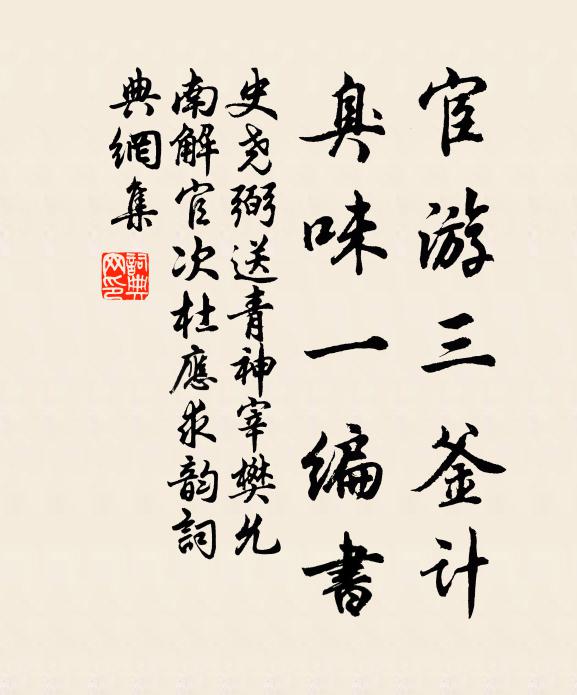 宦游三釜计
臭味一编书
史尧弼送青神宰樊允
南解官次杜應求韵詞
典網集
詞典网印